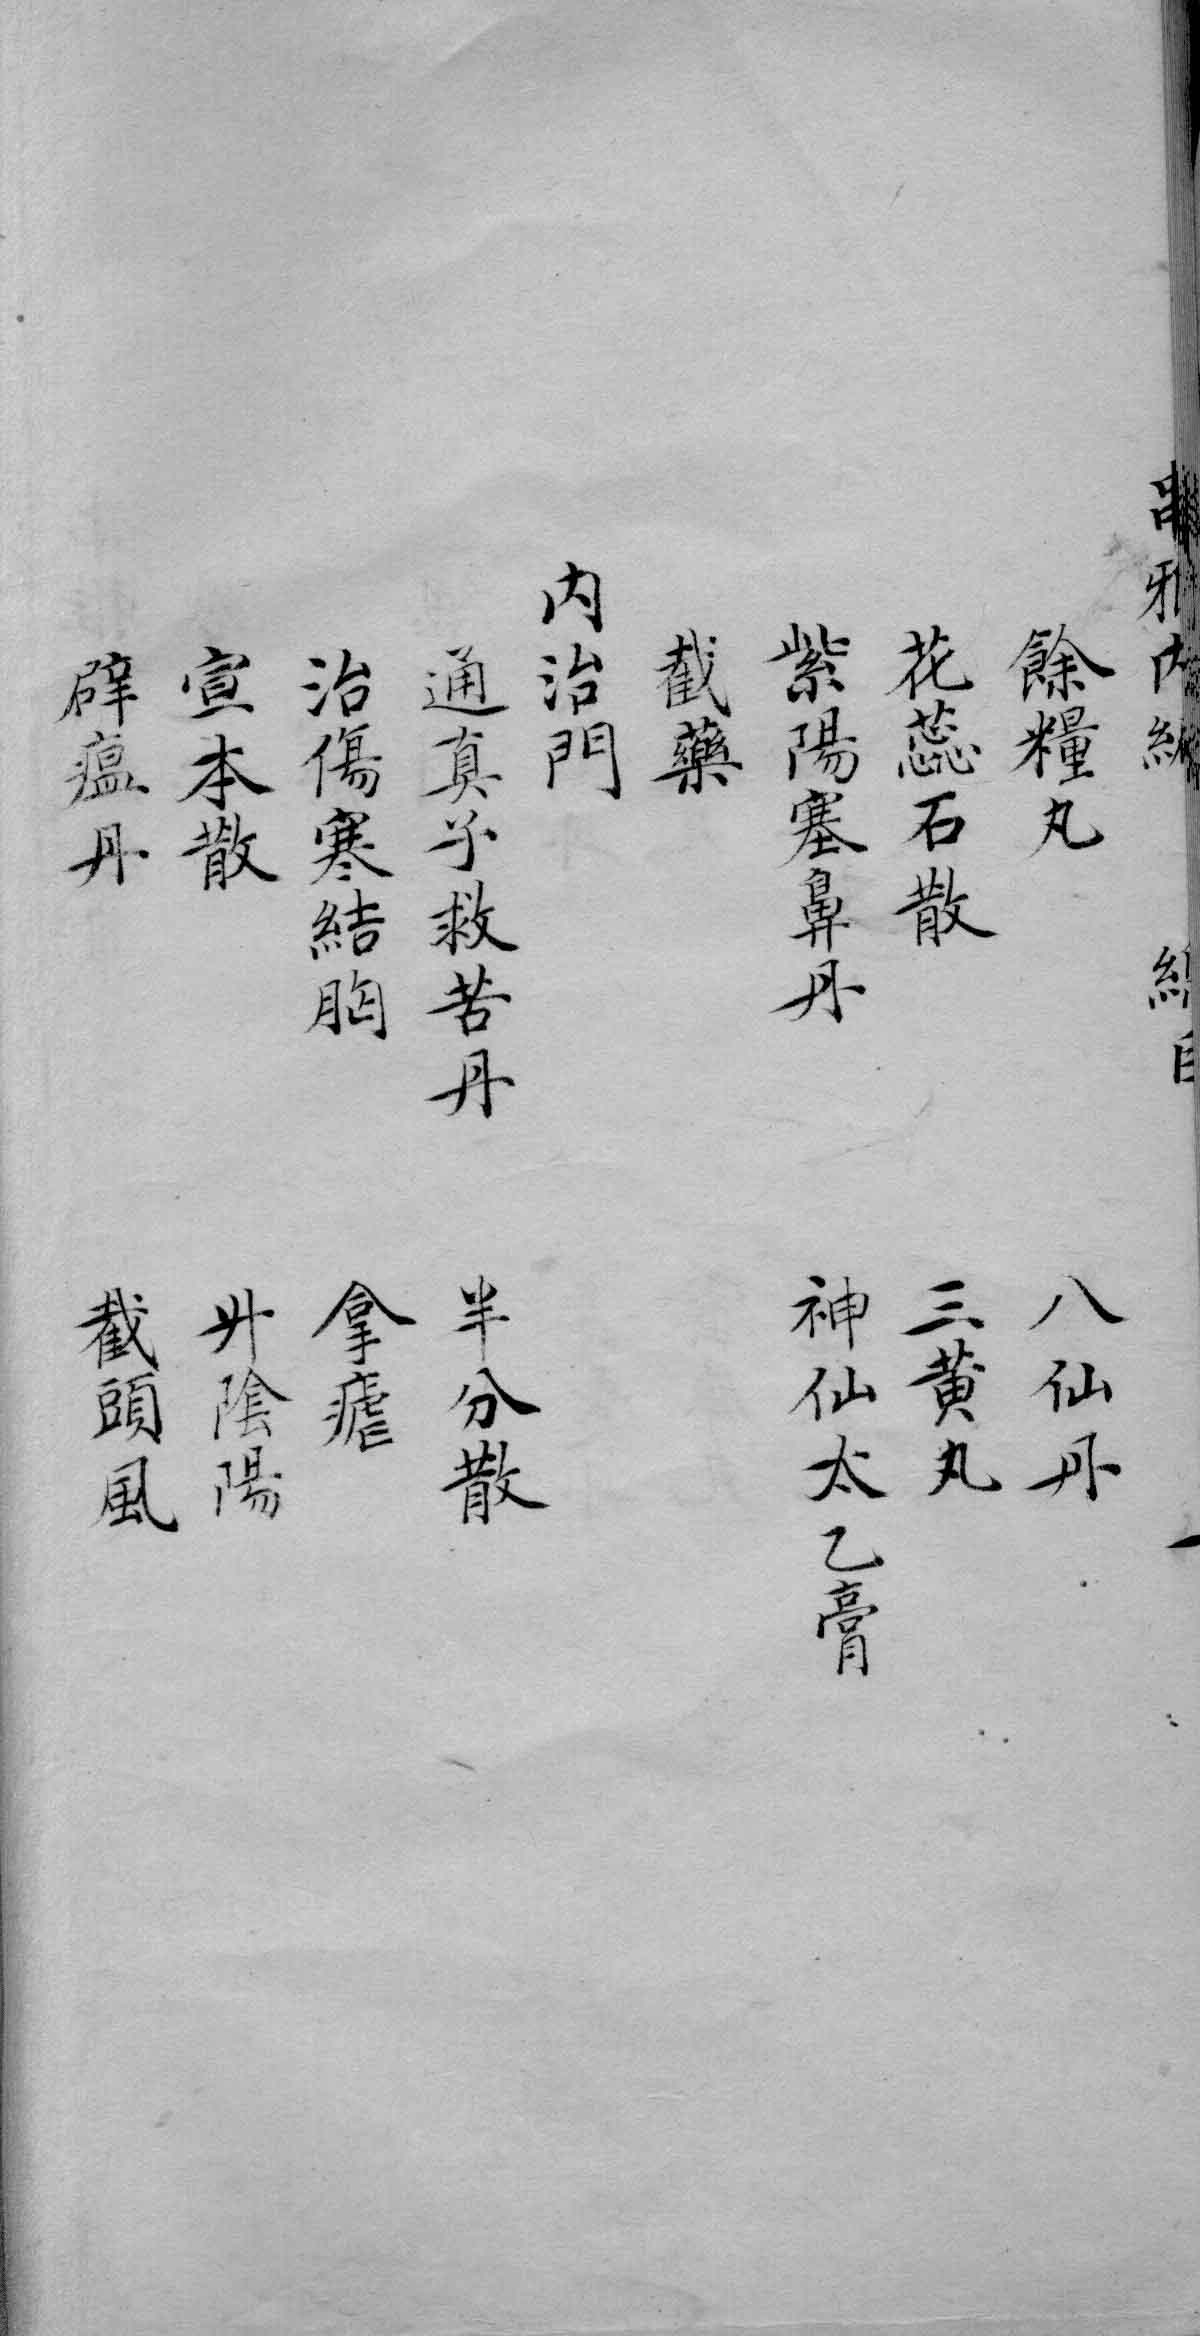 串雅内編 總目 一
餘糧丸 八仙丹
花蕊石散 三黄丸
紫陽塞鼻丹 神仙太乙膏
截藥
内治門
通真子救苦丹 半分散
治傷寒結胸 拿瘧
宣本散 廾陰陽
辟瘟丹 截頭風